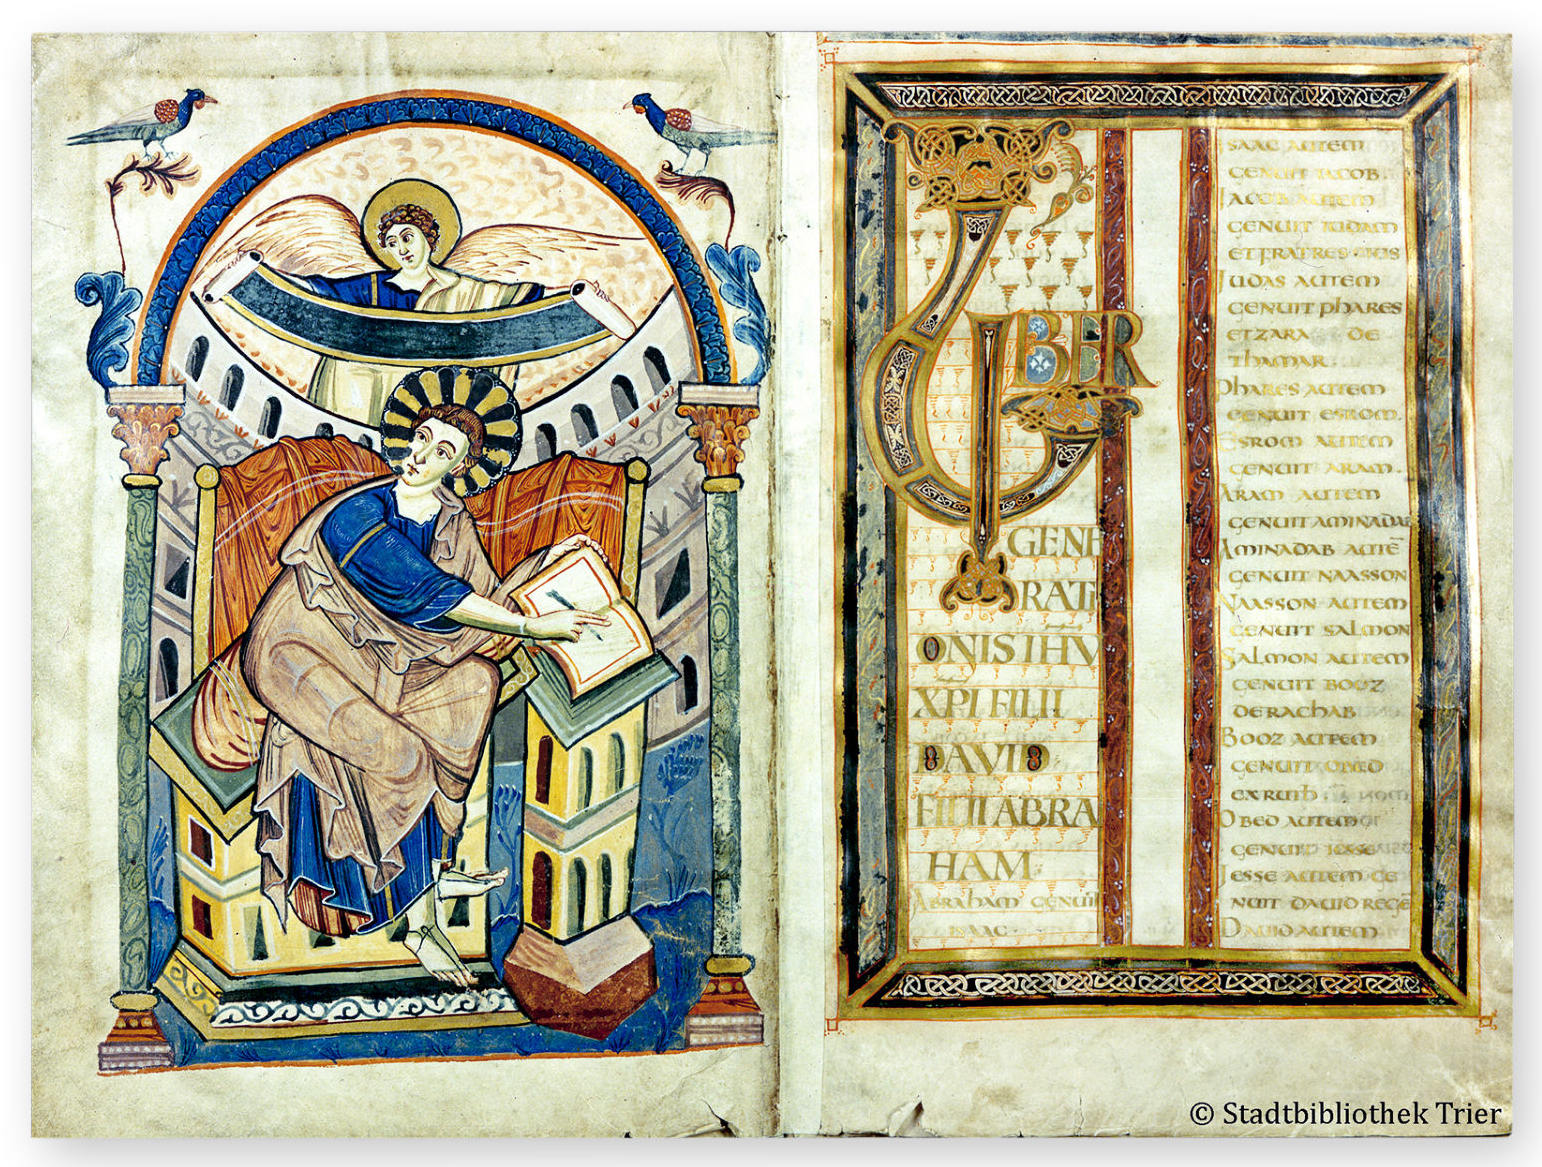 LIBER
GENE
RATI
ONIS IHV
XPI FILII
DAVID
FILII ABRA
HAM
ABRAHAM GENUIT
ISAAC
ISAAC AUTEM
GENUIT IACOB
IACOB AUTEM
GENUIT IUDAM
ET FRATRES EIUS
IUDAS AUTEM
GENUIT PHARES
ET ZARA DE
THAMAR
PHARES AUTEM
GENUIT ESROM
ESROM AUTEM
GENUIT ARAM
ARAM AUTEM
GENUIT AMINADAB
AMINADAB AUTĒ
GENUIT NAASSON
NAASSON AUTEM
GENUIT SALMON
SALMON AUTEM
GENUIT BOOZ
DE RACHAB
BOOZ AUTEM
GENUIT OBED
EX RUTH
OBED AUTEM
GENUIT IESSE
IESSE AUTEM GE
NUIT DAUID REGE
DAUID AUTEM
© Stadtbibliothek Trier